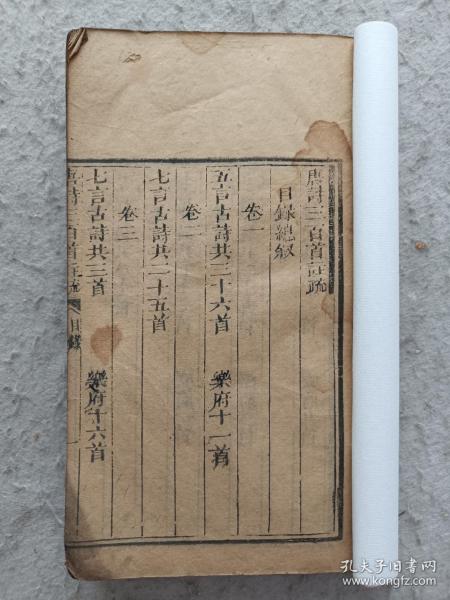 唐詩三百首註疏
目錄總敘
卷一
五言古詩共三十六首 樂府十一首
卷二
七言古詩共二十五首
卷三
七言古詩共三首 樂府十六首
唐詩三百首註疏 目錄 一
孔夫子旧书网
www.kongfz.com